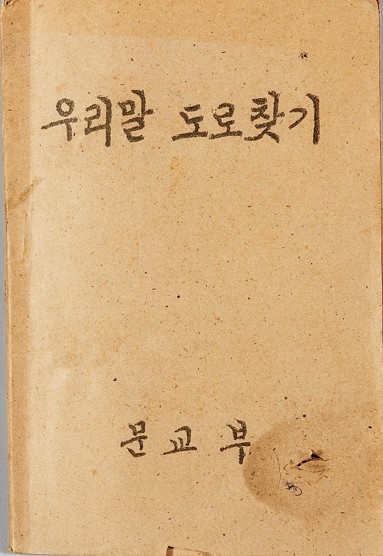 우리말 도로찾기
문교부